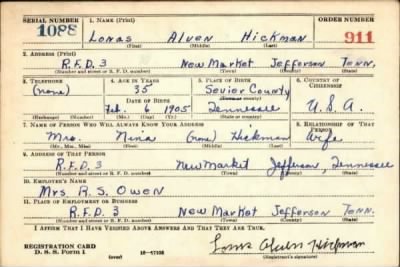 SERIAL NUMBER 1. NAME (Print) ORDER NUMBER
1088 Lonas Alven Hickman 911
(First) (Middle) (Last)
2. ADDRESS (Print)
R.F.D. 3 New Market Jefferson Tenn.
(Number and street or R. F. D. number) (Town) (County) (State)
3. TELEPHONE 4. AGE IN YEARS 5. PLACE OF BIRTH 6. COUNTRY OF CITIZENSHIP
(none) 35 Sevier County
DATE OF BIRTH (Town or county)
Feb. 6 1905 Tennessee U.S.A.
(Exchange) (Number) (Mo.) (Day) (Yr.) (State or country)
7. NAME OF PERSON WHO WILL ALWAYS KNOW YOUR ADDRESS 8. RELATIONSHIP OF THAT PERSON
Mrs. Nina (none) Hickman Wife
(Mr., Mrs., Miss) (First) (Middle) (Last)
9. ADDRESS OF THAT PERSON
R.F.D. 3 New Market Jefferson, Tennessee
(Number and street or R. F. D. number) (Town) (County) (State)
10. EMPLOYER'S NAME
Mrs. R.S. Owen
11. PLACE OF EMPLOYMENT OR BUSINESS
R.F.D. 3 New Market Jefferson Tenn.
(Number and street or R. F. D. number) (Town) (County) (State)
I AFFIRM THAT I HAVE VERIFIED ABOVE ANSWERS AND THAT THEY ARE TRUE.
REGISTRATION CARD
D. S. S. Form 1 (over) Lonas Alven Hickman
(Registrant's signature)